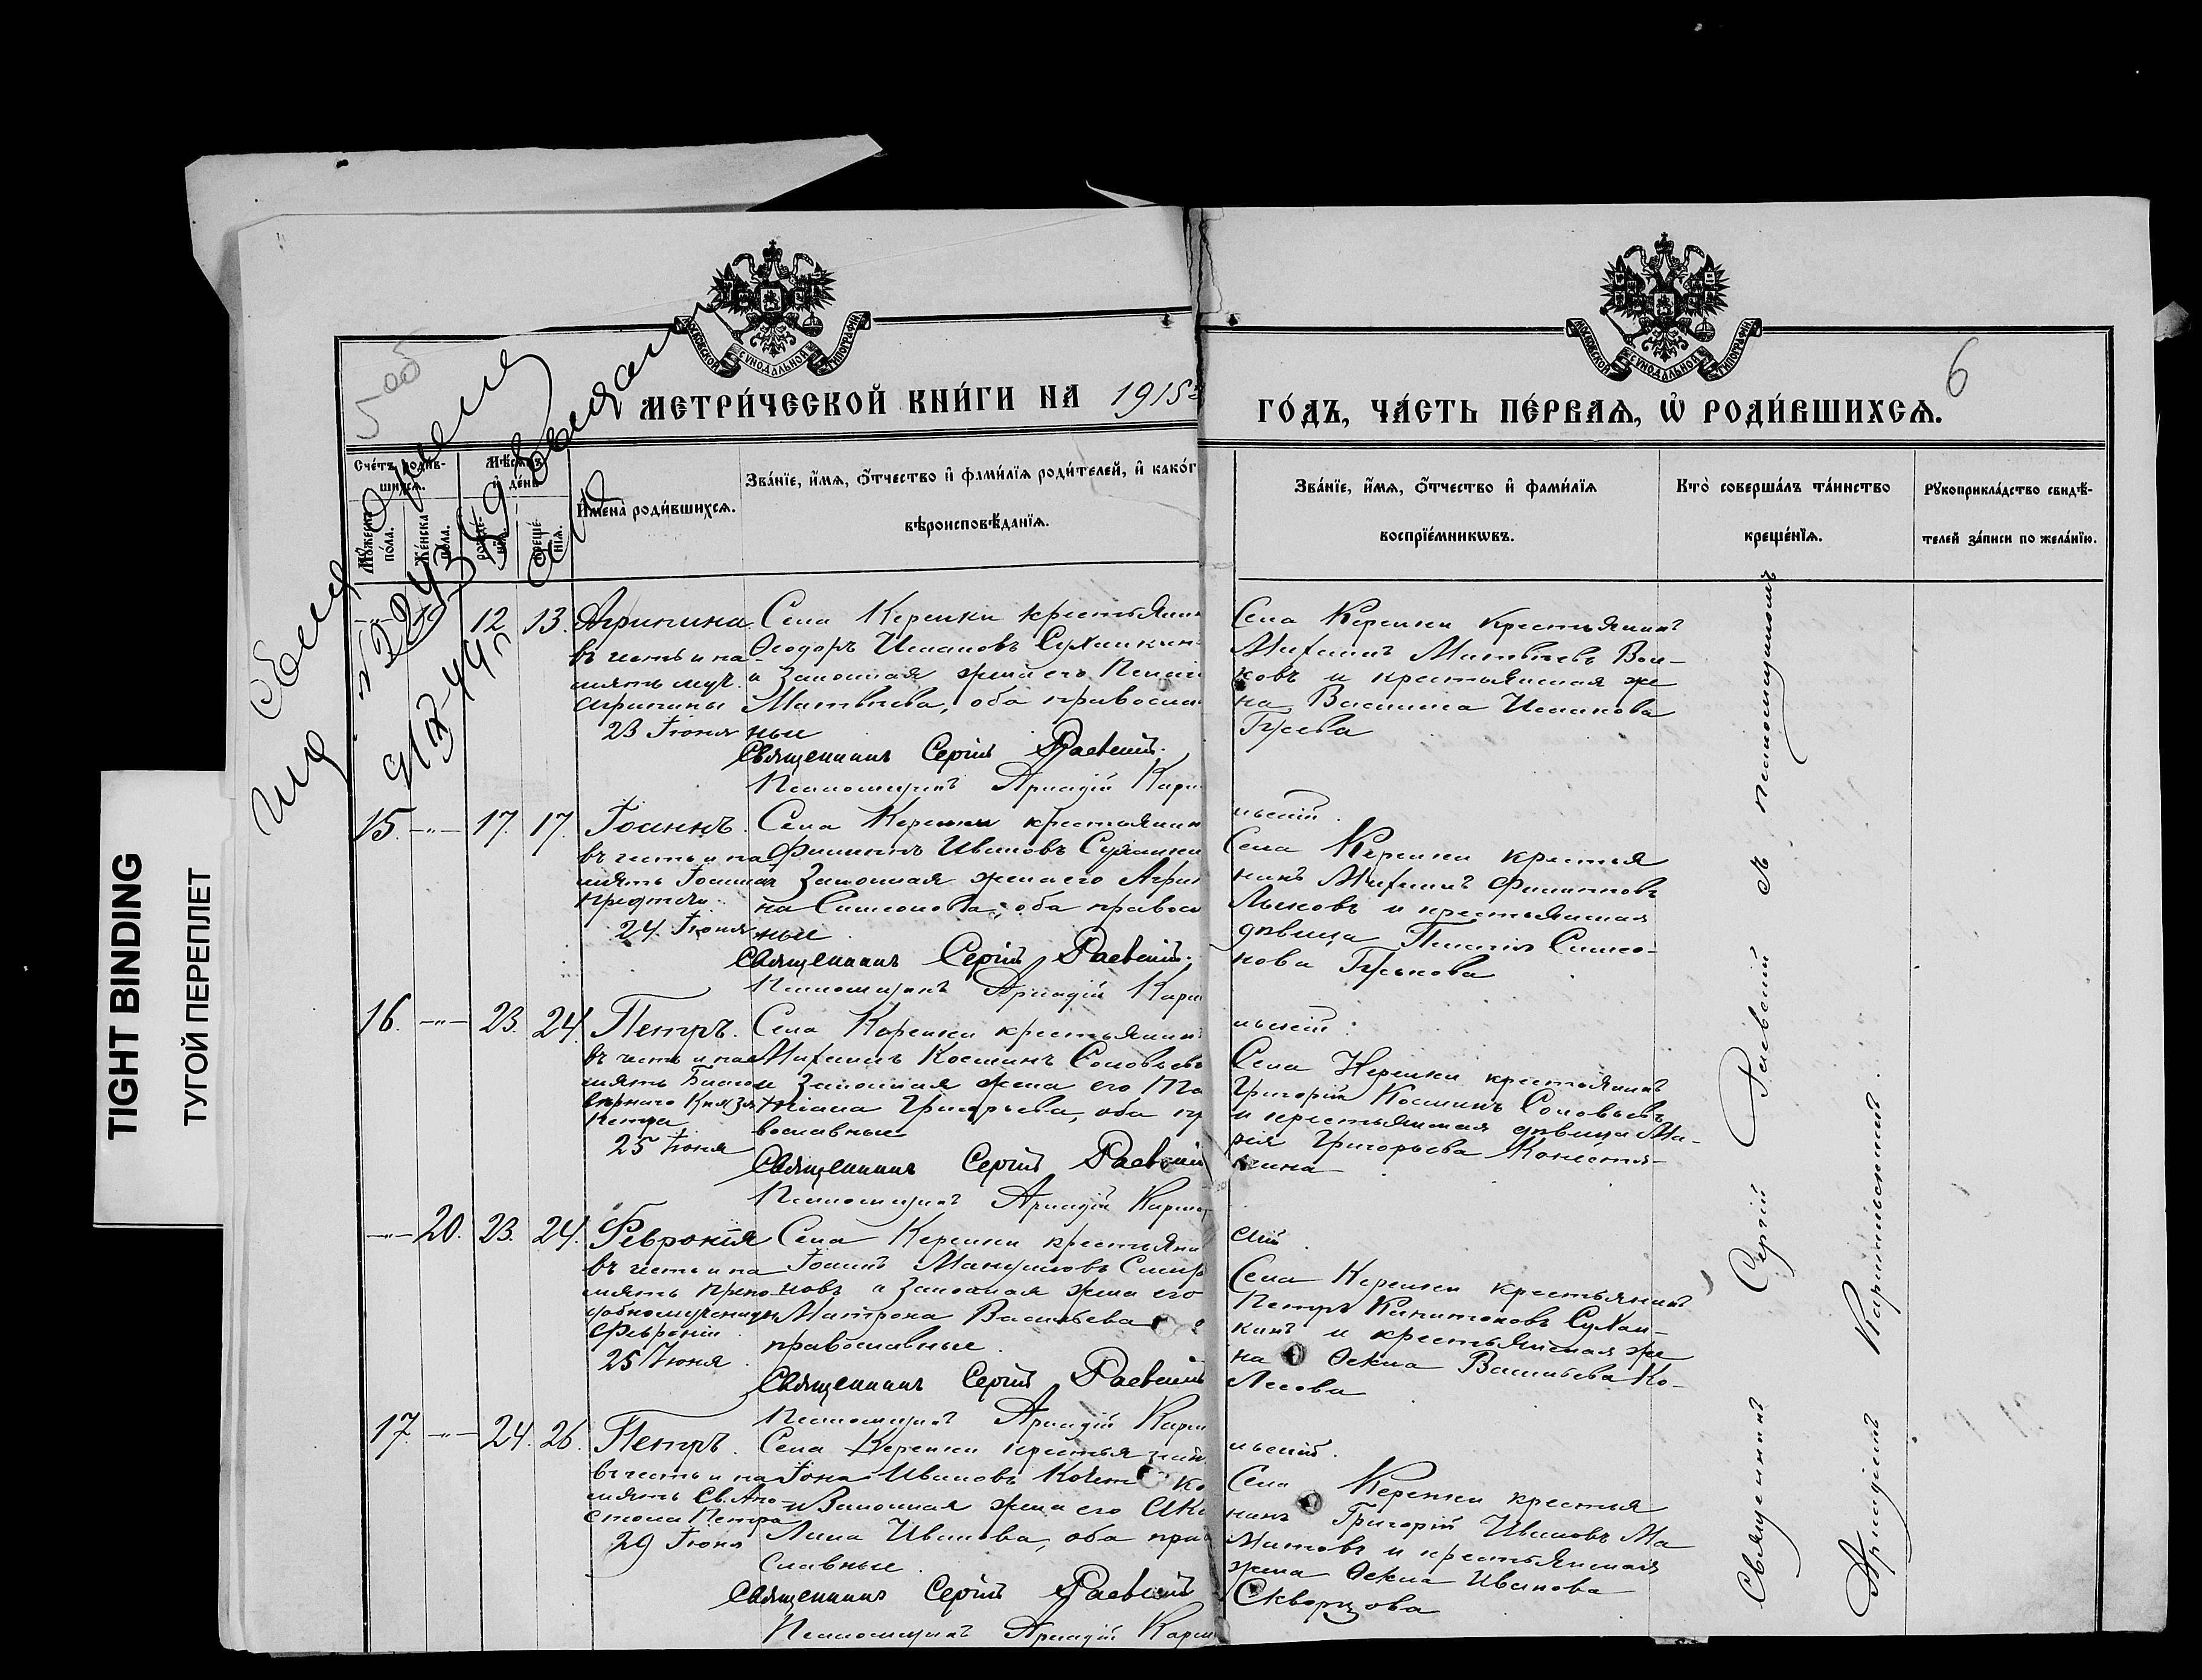 TIGHT BINDING
ТУГОЙ ПЕРЕПЛЕТ
МОСКОВСКОЙ СѴНОДАЛЬНОЙ ТИПОГРАФІИ
МОСКОВСКОЙ СѴНОДАЛЬНОЙ ТИПОГРАФІИ
6
МЕТРИ́ЧЕСКОЙ КНИ́ГИ НА 1915
ГО́ДЪ, ЧА́СТЬ ПЕ́РВАѦ, Ѡ҆ РОДИ́ВШИХСѦ.
Сче́тъ роди́в-
шихсѧ.
Мꙋ́жеска по́ла.
Же́нска по́ла.
Мѣ́сѧцъ
и҆ де́нь
рожде́-
нїѧ.
креще́-
нїѧ.
И҆мена̀ роди́вшихсѧ.
Зва́нїе, и҆́мѧ, ѻ҆́тчество и҆ фами́лїѧ роди́телей, и҆ како́г
вѣроисповѣ́данїѧ.
Зва́нїе, и҆́мѧ, ѻ҆́тчество и҆ фами́лїѧ
воспрїе́мникѡвъ.
Кто̀ соверша́лъ та́инство
креще́нїѧ.
Рꙋкоприкла́дство свидѣ́-
телей за́писи по жела́нїю.
12 13. Агрипина
въ честь и па-
мять муч.
Агрипины
23 Іюня
Села Керенки крестьянин
Ѳеодоръ Исааковъ Сухинкин
и законная жена его Пелаги
Матвѣева, оба православ
ные
Священникъ Сергій Раевскій.
Псаломщикъ Аркадій Карп
Села Керенки крестьянинъ
Михаилъ Матвѣевъ Вол-
ковъ и крестьянская же
на Василиса Исаакова
Гусева
15. -"- 17. 17. Іоаннъ.
въ честь и па
мять Іоанна
Предтечи
24 Іюня
Села Керенки крестьянин
Филиппъ Ивановъ Сухинки
и Законная жена его Агрип
на Симеонова, оба правосл
ные
Священникъ Сергій Раевскій.
Псаломщикъ Аркадій Карп
Села Керенки крестья
нинъ Михаилъ Филипповъ
Лысковъ и крестьянская
дѣвица Симео-
нова
16. -"- 23. 24. Петръ.
въ честь и па
мять Благо
вѣрнаго Князя
Петра
25 Іюня
Села Керенки крестьянин
Михаилъ Космину Соловьевъ
и Законная жена его Та
тіана Григорьева, оба пр
вославные
Священникъ Сергій Раевскій
Псаломщикъ Аркадій Карп
Села Керенки крестьянинъ
Григорій Косминъ Соловьевъ
и крестьянская дѣвица Ма-
рія Григорьева
-"- 20. 23. 24. Февронія
въ честь и па
мять препо-
добномученицы
Февроніи
25 Іюня
Села Керенки крестьяни
Іоаннъ Мануиловъ Смир
новъ и Законная жена его
Матрона Васильева
православные.
Священникъ Сергій Раевскій
Псаломщикъ Аркадій Карп
скій
Села Керенки крестьянинъ
Петръ Капитоновъ Сухан-
кинъ и крестьянская же
на Ѳекла Васильева Ко-
лесова
17. -"- 24. 26. Петръ.
въ честь и па
мять Св. Апо-
стола Петра
29 Іюня
Села Керенки крестьянин
Іона Ивановъ
и Законная жена его Аки
лина Иванова, оба прав
славные.
Священникъ Сергій Раевскій
Псаломщикъ Аркадій Карп
Села Керенки крестья
нинъ Григорій Ивановъ Ма
митовъ и крестьянская
жена Ѳекла Иванова
Скворцова
Священникъ Сергій Раевскій съ псаломщикомъ
Аркадіемъ